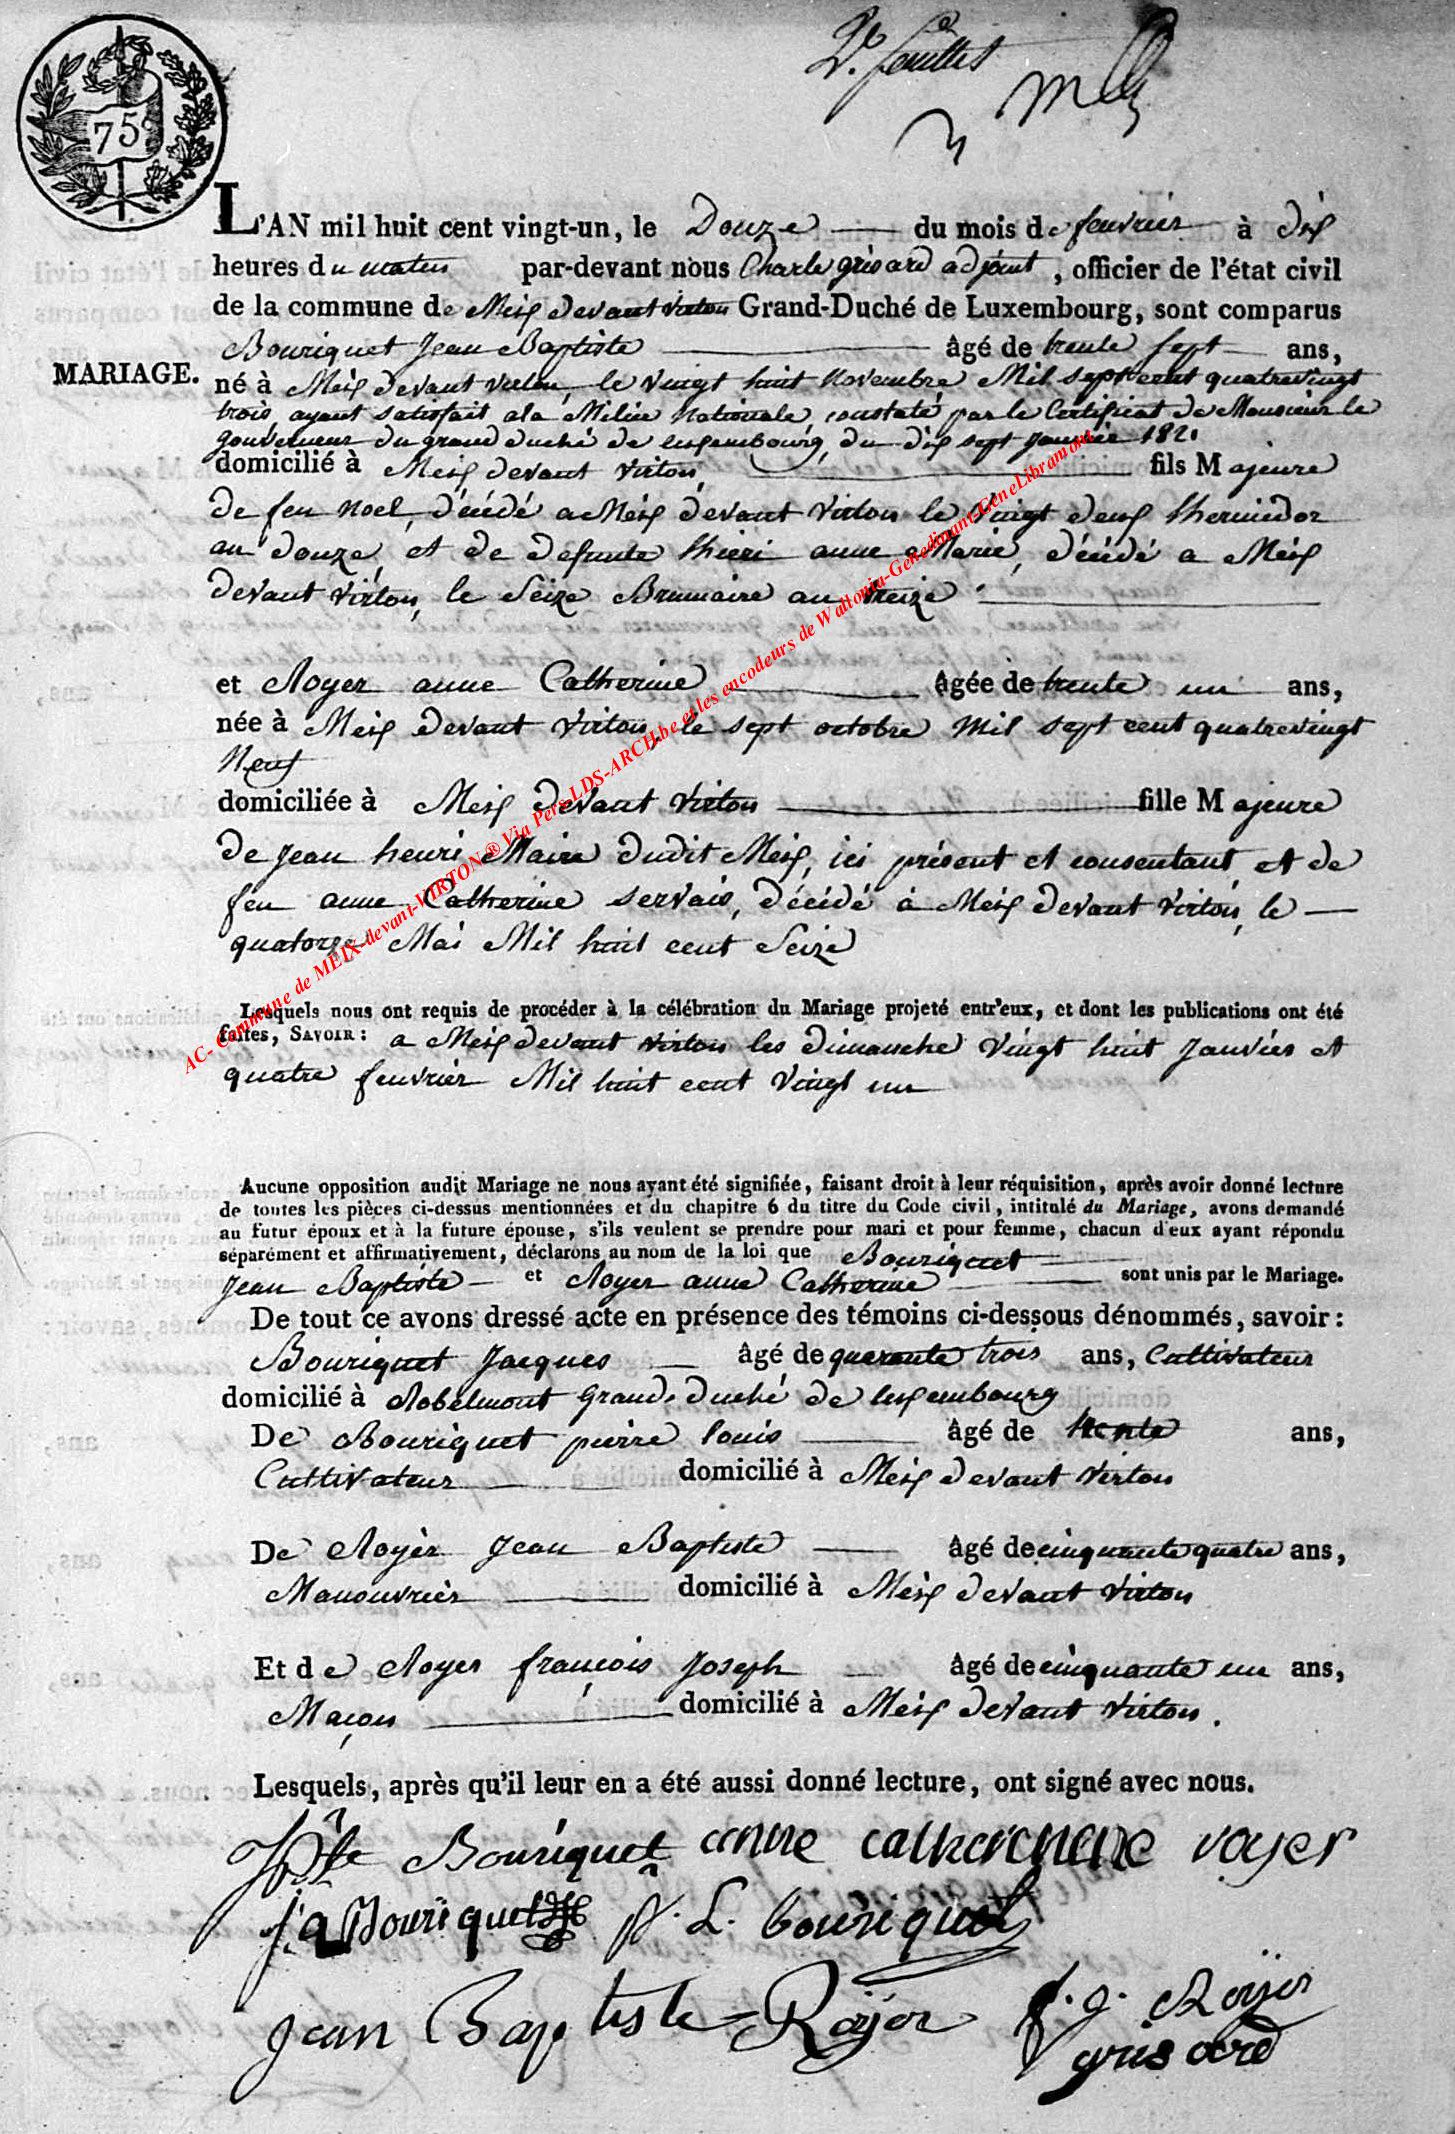 2e. feuillet
75
L'AN mil huit cent vingt-un, le Douze du mois de feuvrier à dix
heures du matin par-devant nous Charle grisard adjoint, officier de l'état civil
de la commune de Meix devant virton Grand-Duché de Luxembourg, sont comparus
Bouriquet Jean Baptiste âgé de trente sept ans,
MARIAGE.
né à Meix devant virton, le vingt huit Novembre Mil sept cent quatrevingt
trois, ayant satisfait ala Milice Nationale, constaté par le Certificat de Monsieur le
gouverneur du grand duché de luxembourg, du dix sept Janvier 1821
domicilié à Meix devant virton, fils Majeure
de feu Noel, décédé a Meix devant Virton le Vingt deux thermidor
an douze, et de defunte thiéri anne Marie, décédé a Meix
devant virton, le Seize Brumaire an treize
et Royer anne Catherine âgée de trente un ans,
née à Meix devant Virton, le sept octobre Mil sept cent quatrevingt
Neuf
domiciliée à Meix devant virton fille Majeure
de Jean henri Maire dudit Meix, ici présent et consentant et de
feu anne Catherine servais, décédé à Meix devant Virton, le
quatorze Mai Mil huit cent Seize
Lesquels nous ont requis de procéder à la célébration du Mariage projeté entr'eux, et dont les publications ont été
faites, SAVOIR : a Meix devant virton les dimanche Vingt huit Janvier et
quatre feuvrier Mil huit cent Vingt un
Aucune opposition audit Mariage ne nous ayant été signifiée, faisant droit à leur réquisition, après avoir donné lecture
de toutes les pièces ci-dessus mentionnées et du chapitre 6 du titre du Code civil, intitulé du Mariage, avons demandé
au futur époux et à la future épouse, s'ils veulent se prendre pour mari et pour femme, chacun d'eux ayant répondu
séparément et affirmativement, déclarons au nom de la loi que Bouriquet
Jean Baptiste et Royer anne Catherine sont unis par le Mariage.
De tout ce avons dressé acte en présence des témoins ci-dessous dénommés, savoir :
Bouriquet Jacques âgé de quarante trois ans, Cultivateur
domicilié à Robelmont Grand duché de luxembourg
De Bouriquet pierre louis âgé de trente ans,
Cultivateur domicilié à Meix devant Virton
De Royér Jean Baptiste âgé de cinquante quatre ans,
Manouvrier domicilié à Meix devant Virton
Et de Royer françois Joseph âgé de cinquante un ans,
Maçon domicilié à Meix devant Virton.
Lesquels, après qu'il leur en a été aussi donné lecture, ont signé avec nous.
Bouriquet anne royer
Bouriquet p. L. bouriquet
Jean Baptiste Royer f. j. Royer
grisard
AC- Commune de MEIX-devant-VIRTON ® Via Pers-LDS-ARCH.be et les encodeurs de Wallonia-Genedinant-GeneLibramont